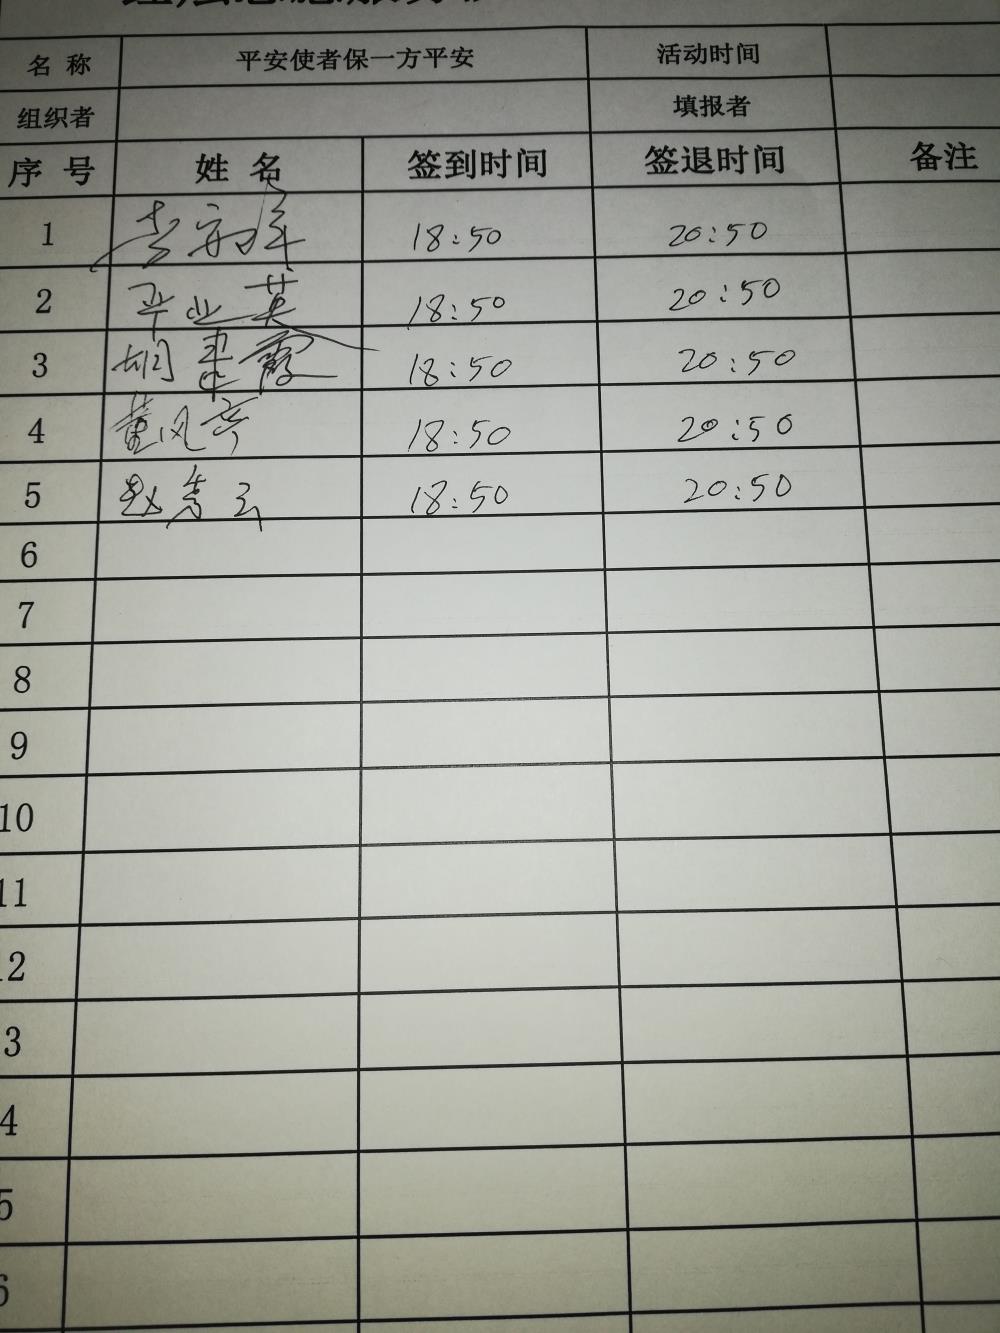 名 称 平安使者保一方平安 活动时间
组织者 填报者
序 号 姓 名 签到时间 签退时间 备注
1 18:50 20:50
2 平业英 18:50 20:50
3 胡 霞 18:50 20:50
4 黄凤 18:50 20:50
5 赵 云 18:50 20:50
6
7
8
9
10
11
12
3
4
5
6